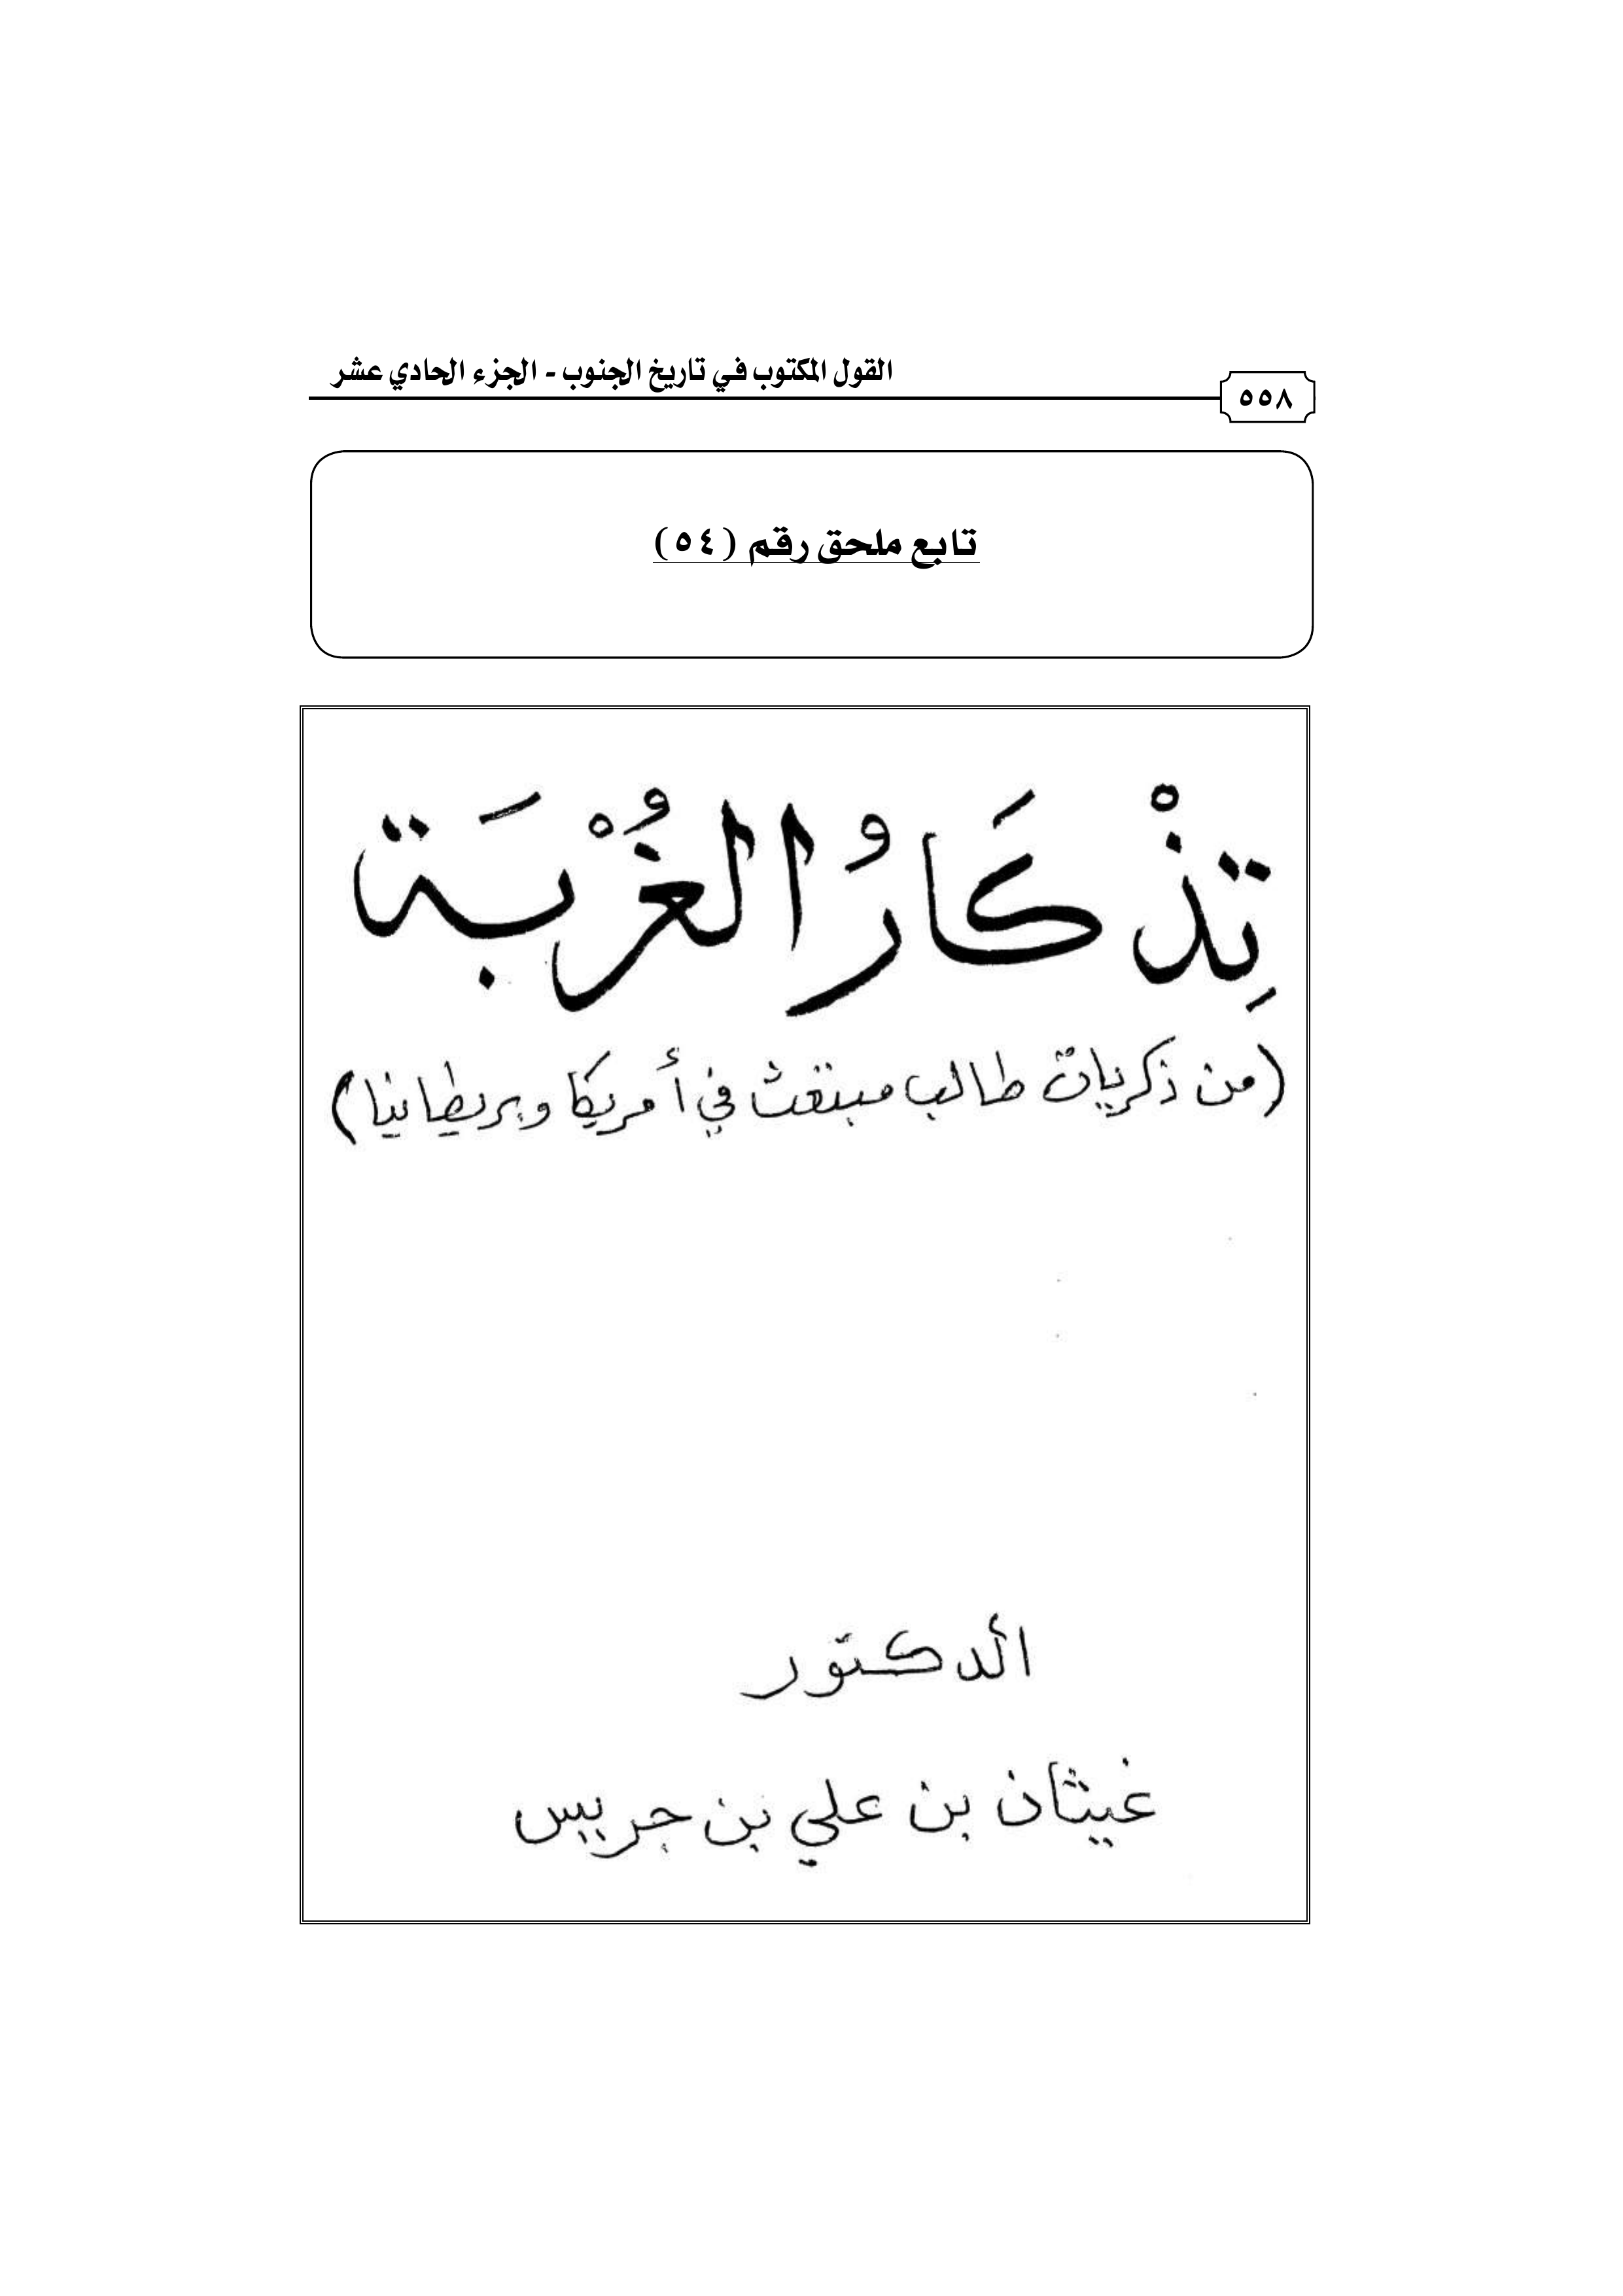 القول المكتوب في تاريخ الجنوب - الجزء الحادي عشر
٥٥٨
تابع ملحق رقم (٥٤)
تِذْكَارُ الغُرْبَة
(من ذكريات طالب مبتعث في أمريكا وبريطانيا)
الدكتور
غيثان بن علي بن جريس